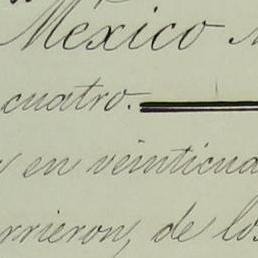 México
cuatro.
en veinticua
rrieron, de los